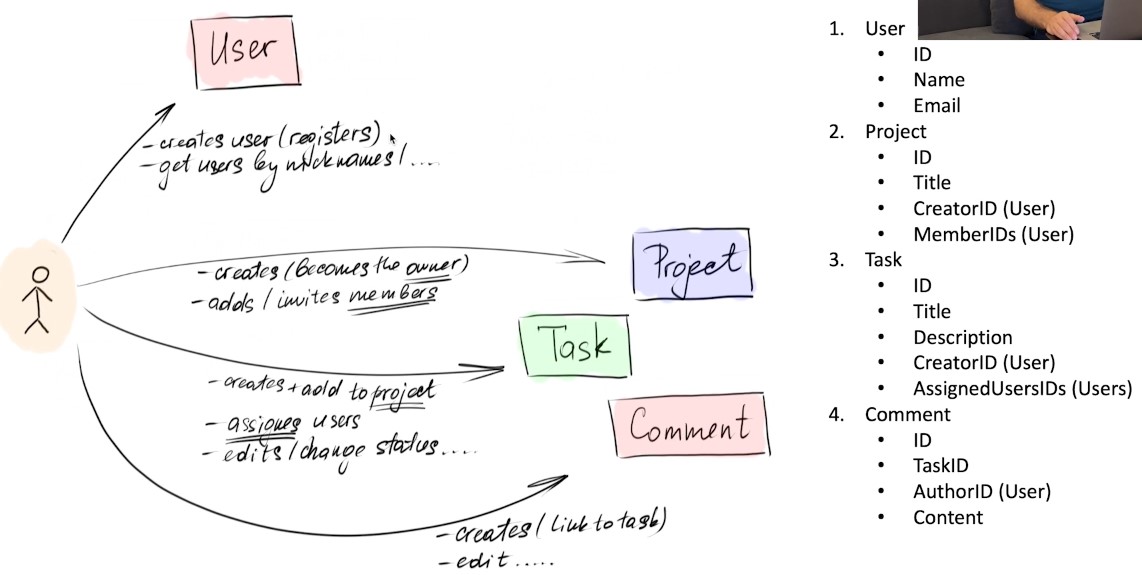 User
- creates user (registers)
- get users by nicknames / ....
- creates (becomes the owner)
- adds / invites members
Project
Task
- creates + add to project
- assignes users
- edits / change status ....
Comment
- creates (link to task)
- edit .....
1. User
• ID
• Name
• Email
2. Project
• ID
• Title
• CreatorID (User)
• MemberIDs (User)
3. Task
• ID
• Title
• Description
• CreatorID (User)
• AssignedUsersIDs (Users)
4. Comment
• ID
• TaskID
• AuthorID (User)
• Content